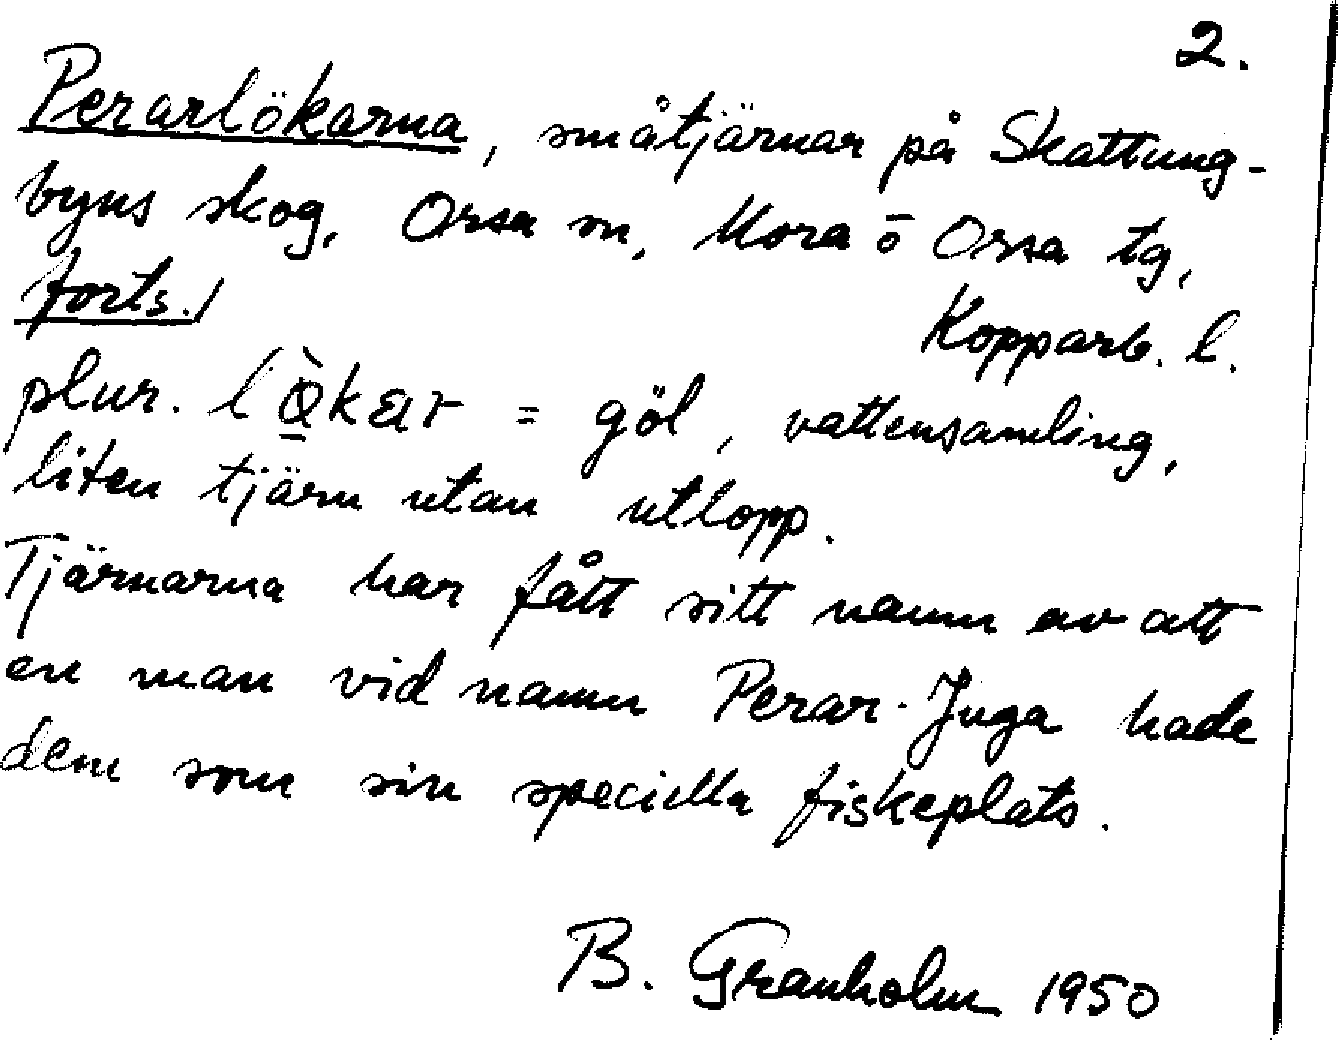 2.
Perarlökarna, småtjärnar på Skattung-
byns skog, Orsa sn, Mora ō Orsa tg,
forts./ Kopparb. l.
plur. lø̱̀kar = göl, vattensamling,
liten tjärn utan utlopp.
Tjärnarna har fått sitt namn av att
en man vid namn Perar-Juga hade
dem som sin speciella fiskeplats.
B. Granholm 1950